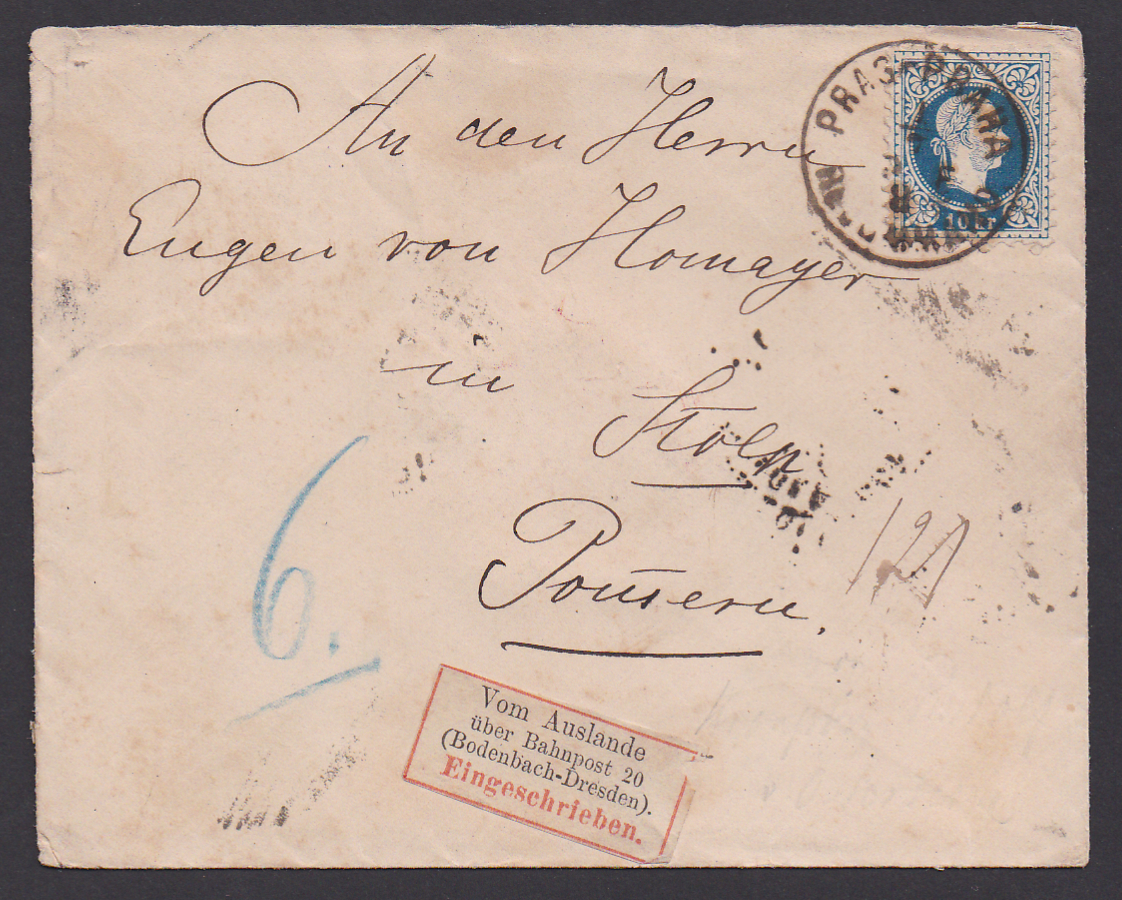 An den Herrn
Eugen von Homayer
in
Stolp
Pom̄ern.
PRAG-PRAHA
10 kr
6.
Vom Auslande
über Bahnpost 20
(Bodenbach-Dresden).
Eingeschrieben.